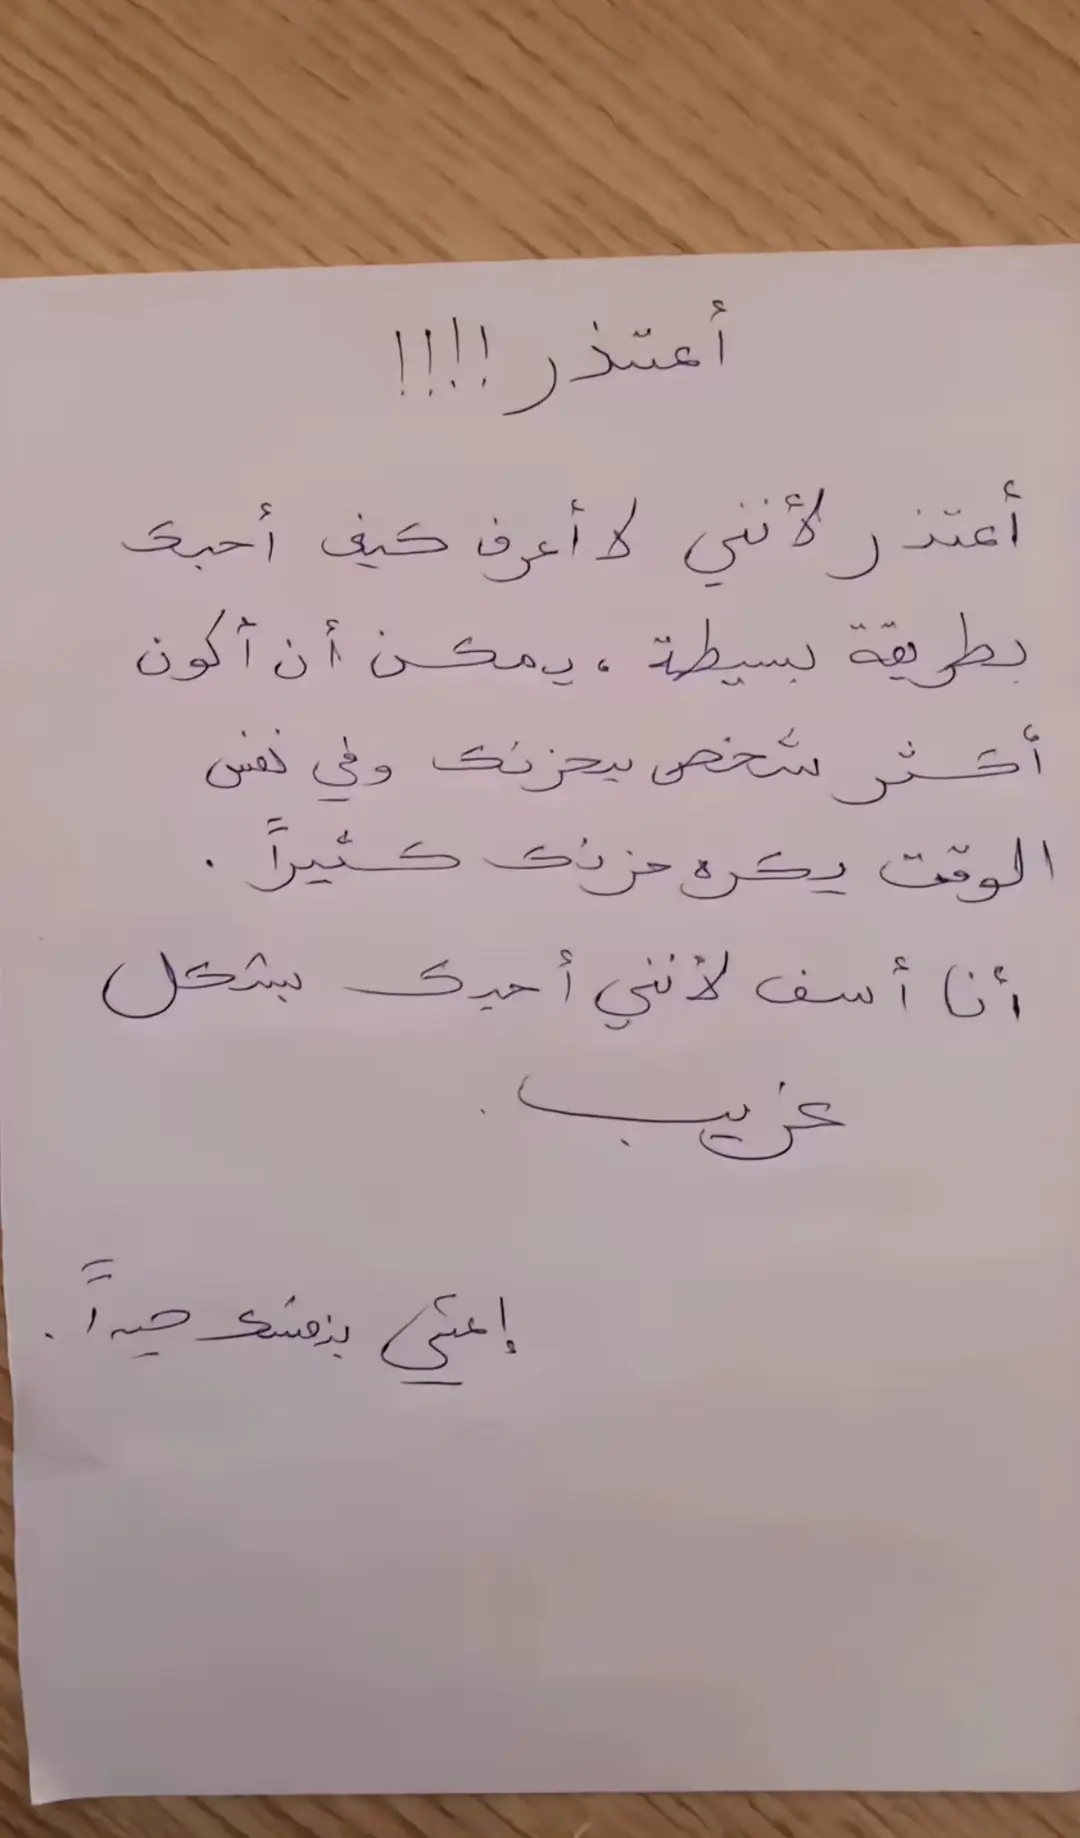 أعتذر !!!!
أعتذر لأنني لا أعرف كيف أحبك
بطريقة بسيطة ، يمكن أن أكون
أكثر شخص يحزنك وفي نفس
الوقت يكره حزنك كثيراً .
أنا أسف لأنني أحبك بشكل
غريب .
إعتني بنفسك جيداً .